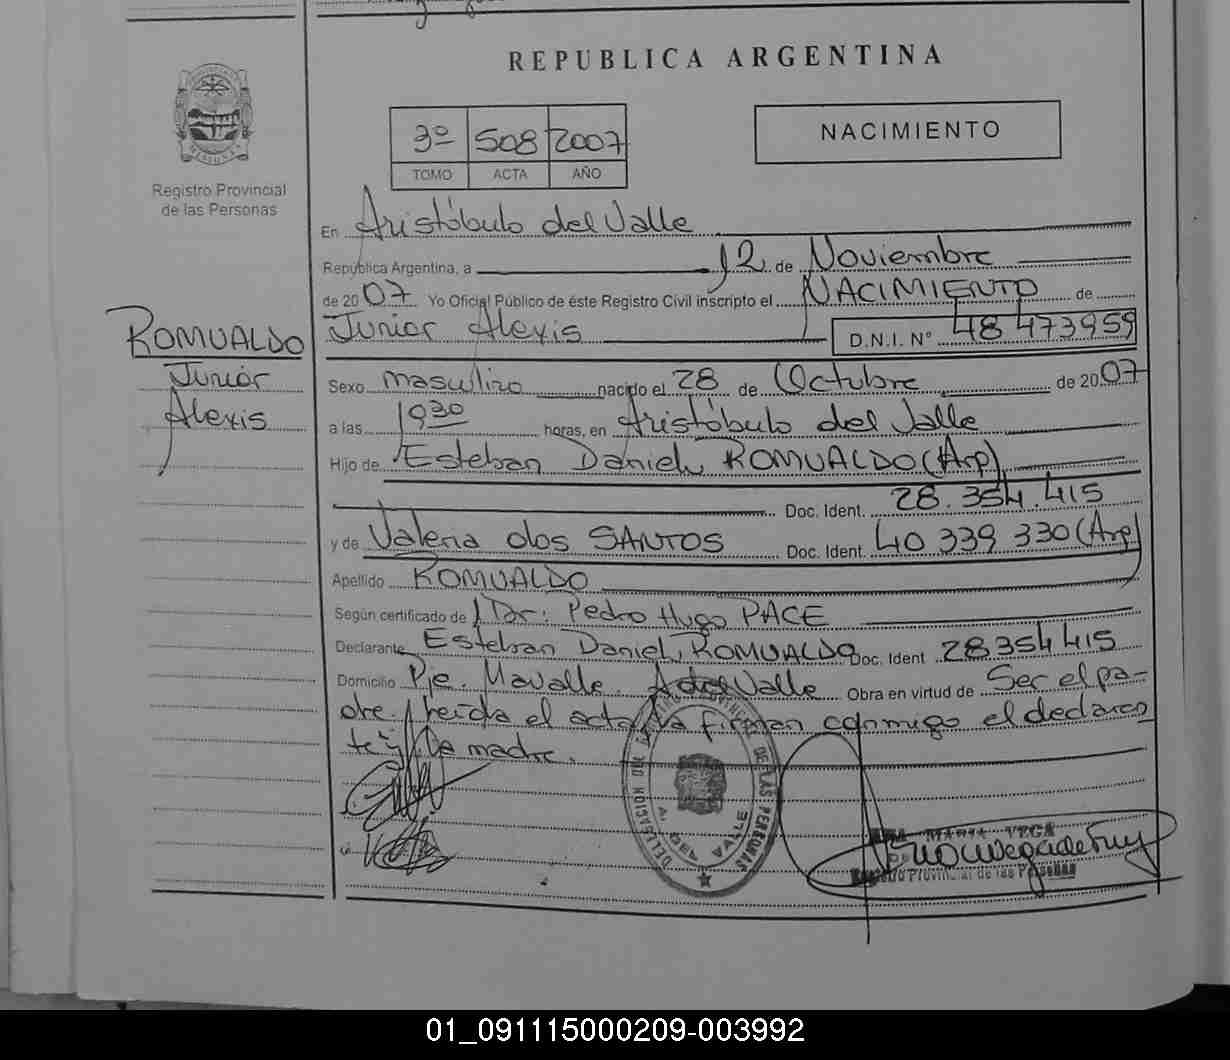 REPUBLICA ARGENTINA
3º 508 2007
TOMO ACTA AÑO
NACIMIENTO
MISIONES
Registro Provincial
de las Personas
En Aristóbulo del Valle
República Argentina, a 12 de Noviembre
de 2007 Yo Oficial Público de éste Registro Civil inscripto el NACIMIENTO de
Junior Alexis D.N.I. Nº 48 473959
ROMUALDO
Junior
Alexis
Sexo masculino nacido el 28 de Octubre de 2007
a las 1930 horas, en Aristóbulo del Valle
Hijo de Esteban Daniel, ROMUALDO (Arp)
Doc. Ident. 28.354.415
y de Valeria dos SANTOS Doc. Ident. 40 339 330 (Arp)
Apellido ROMUALDO
Según certificado de Dr: Pedro Hugo PACE
Declarante Esteban Daniel, ROMUALDO Doc. Ident 28354415
Domicilio Pje. A del Valle Obra en virtud de Ser el pa-
dre, leída el acta la firman conmigo el declaran
te y la madre.
DELEGACION DEL REGISTRO PROVINCIAL DE LAS PERSONAS
A. DEL VALLE
ANA MARIA VEGA
Registro Provincial de las Personas
01_091115000209-003992